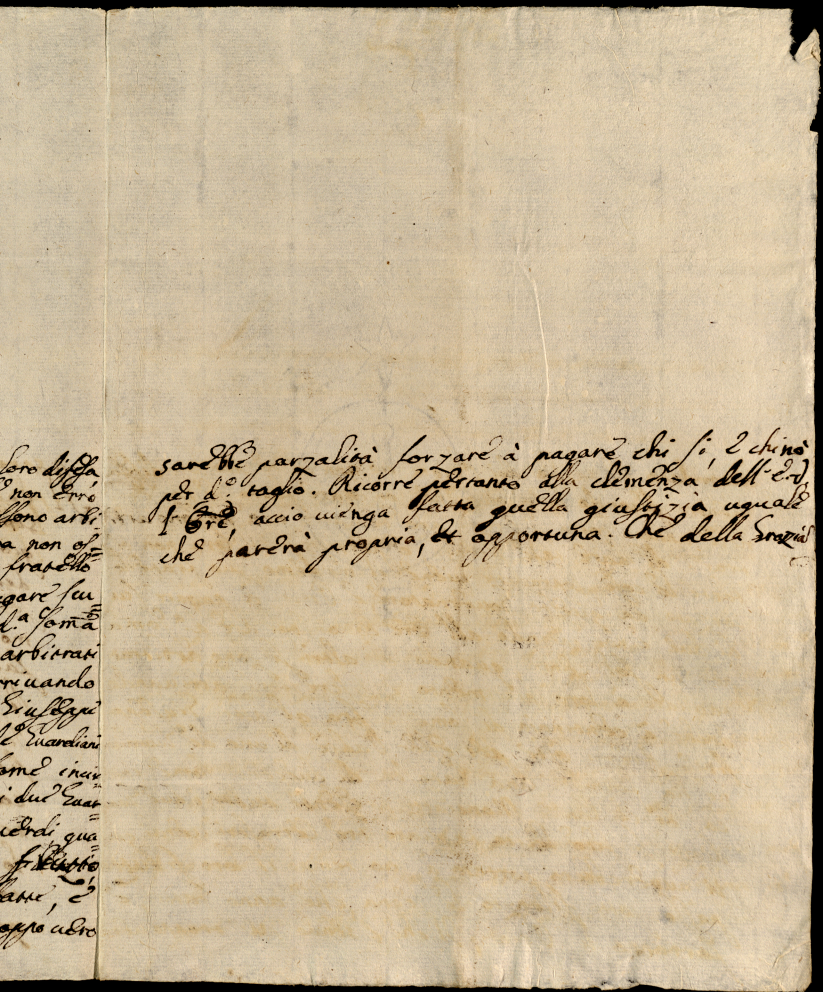 loro difesa
non errò
ssono arbi
a non os=
fratello
gare scu=
d.ª somã
arbitrati
rrivando
Giuseppe
Guardiani
come incir=
i due Guar=
verdi qua=
latte, è
oppo vero
sarebbe parzalità forzare à pagare chi sì, e chi nò
per d.º taglio. Ricorre pertanto alla clemenza dell'
accio venga fatta quella giustizia uguale
che parerà propria, et opportuna. Che della Grazia